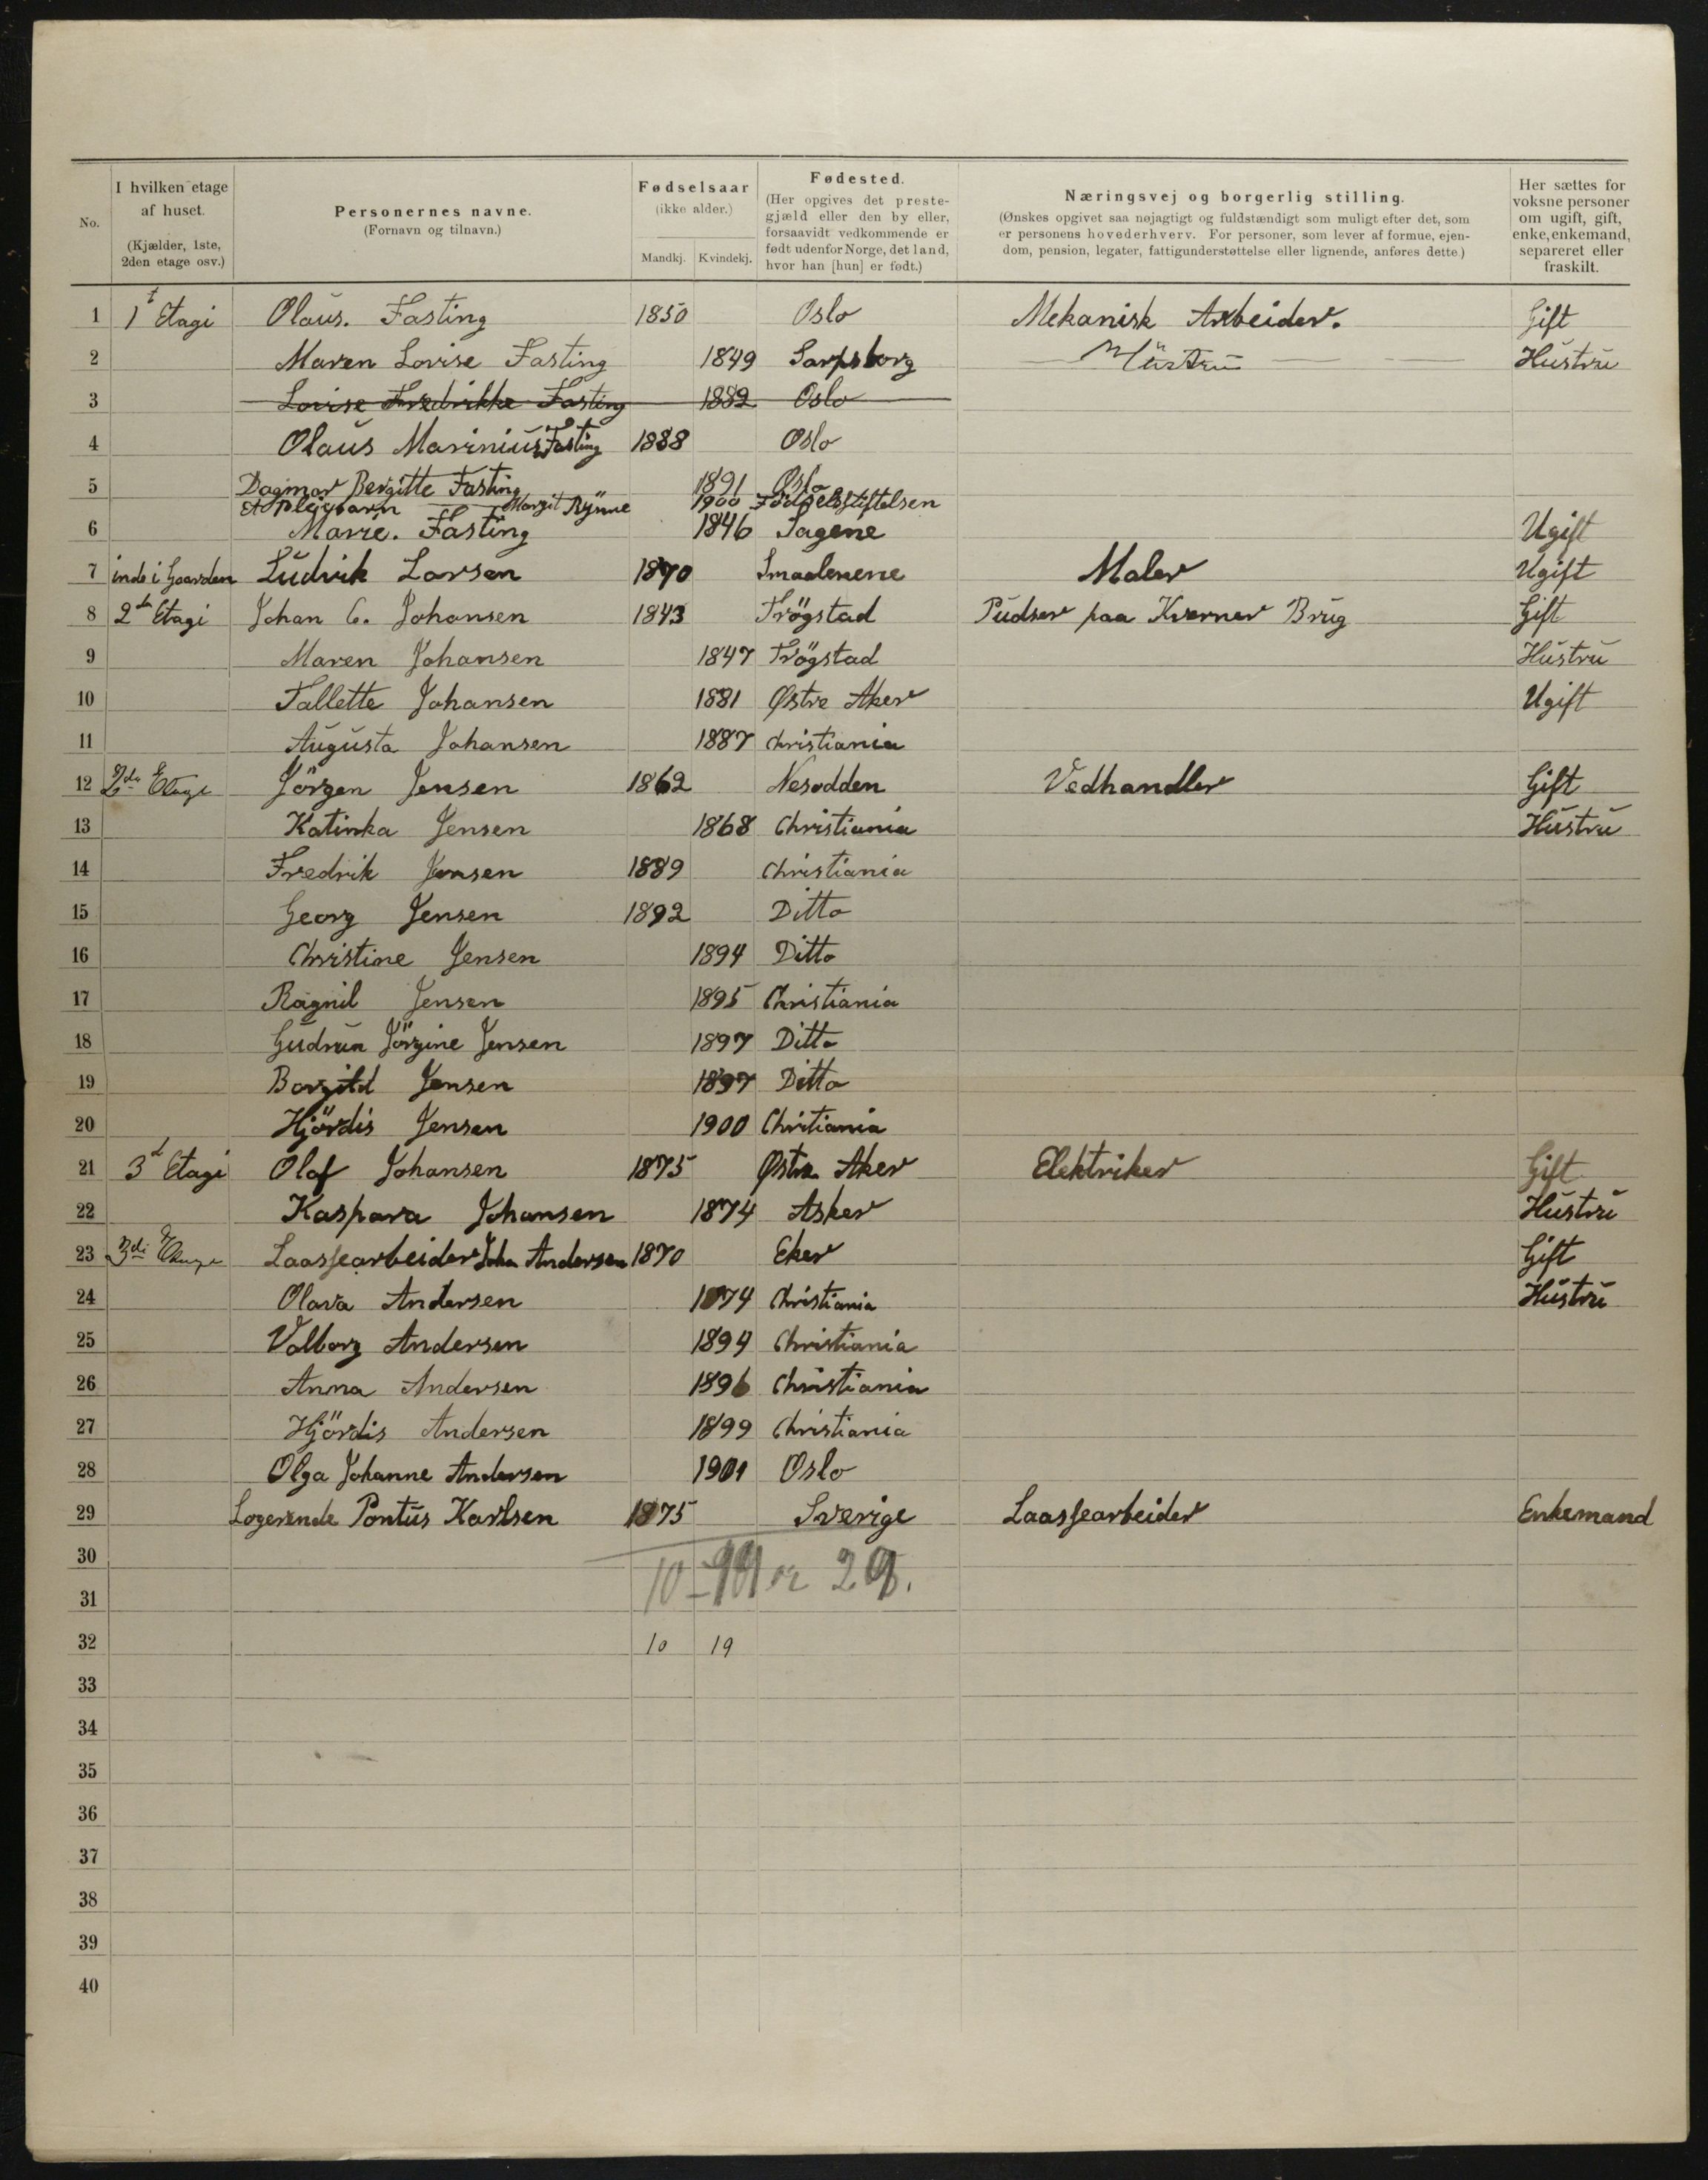 No.
I hvilken etage af huset. (Kjælder, 1ste, 2den etage osv.)
Personernes navne. (Fornavn og tilnavn.)
Fødselsaar (ikke alder.)
Mandkj. Kvindekj.
Fødested. (Her opgives det prestegjæld eller den by eller, forsaavidt vedkommende er født udenfor Norge, det land, hvor han [hun] er født.)
Næringsvej og borgerlig stilling. (Ønskes opgivet saa nøjagtigt og fuldstændigt som muligt efter det, som er personens hovederhverv. For personer, som lever af formue, ejendom, pension, legater, fattigunderstøttelse eller lignende, anføres dette.)
Her sættes for voksne personer om ugift, gift, enke, enkemand, separeret eller fraskilt.
1 1t Etagi Olaus. Fasting 1850 Oslo Mekanisk Arbeider. Gift
2 Maren Lovise Fasting 1849 Sarpsborg Hustru Hustru
3 Lovise Fredrikke Fasting 1882 Oslo
4 Olaus Marinius Fasting 1888 Oslo
5 Dagmar Bergitte Fasting 1891 Oslo
Et Pleiebarn Margit Rynne 1900 Fødselsstiftelsen
6 Marie. Fasting 1846 Sagene Ugift
7 inde i Gaarden Ludvik Larsen 1870 Smaalenene Maler Ugift
8 2den Etagi Johan C. Johansen 1843 Trögstad Pudser paa Kverner Brug Gift
9 Maren Johansen 1847 Trögstad Hustru
10 Tallette Johansen 1881 Østre Aker Ugift
11 Augusta Johansen 1887 Christiania
12 2de Etage Jörgen Jensen 1862 Nesodden Vedhandler Gift
13 Katinka Jensen 1868 Christiania Hustru
14 Fredrik Jensen 1889 Christiania
15 Georg Jensen 1892 Ditto
16 Christine Jensen 1894 Ditto
17 Ragnil Jensen 1895 Christiania
18 Gudrun Jörgine Jensen 1897 Ditto
19 Borgild Jensen 1897 Ditto
20 Hjördis Jensen 1900 Chritiania
21 3d Etagi Olaf Johansen 1875 Østre Aker Elektriker Gift
22 Kaspara Johansen 1874 Asker Hustru
23 3di Etage Laassearbeider Joha Andersen 1870 Eker Gift
24 Olava Andersen 1874 Christiania Hustru
25 Valborg Andersen 1894 Christiania
26 Anna Andersen 1896 Christiania
27 Hjördis Andersen 1899 Christiania
28 Olga Johanne Andersen 1901 Oslo
29 Logerende Pontus Karlsen 1875 Sverige Laassearbeider Enkemand
30
10 – 19 29.
31
32 10 19
33
34
35
36
37
38
39
40